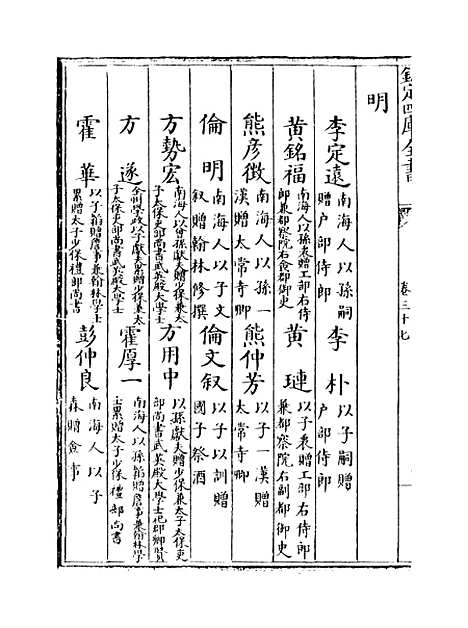 欽定四庫全書
卷三十七
明
李定遠
南海人以孫嗣
贈户部侍郎
李朴
以子嗣贈
户部侍郎
黄銘福
南海人以孫表贈工部右侍
郎兼都察院右僉都御史
黄璉
以子表贈工部右侍郎
兼都察院右副都御史
熊彥徴
南海人以孫一
漢贈太常寺卿
熊仲芳
以子一漢贈
太常寺卿
倫明
南海人以子文
叙贈翰林修撰
倫文叙
以子以訓贈
國子祭酒
方勢宏
南海人以曾孫獻夫贈少保兼太
子太保吏部尚書武英殿大學士
方用中
以孫獻夫贈少保兼太子太保吏
部尚書武英殿大學士祀郡鄉賢
方遂
全州學政以子獻夫累贈少保兼太
子太保吏部尚書武英殿大學士
霍厚一
南海人以孫韜贈詹事兼翰林學
士累贈太子少保禮部尚書
霍華
以子韜贈詹事兼翰林學士
累贈太子少保禮部尚書
彭仲良
南海人以子
森贈僉事